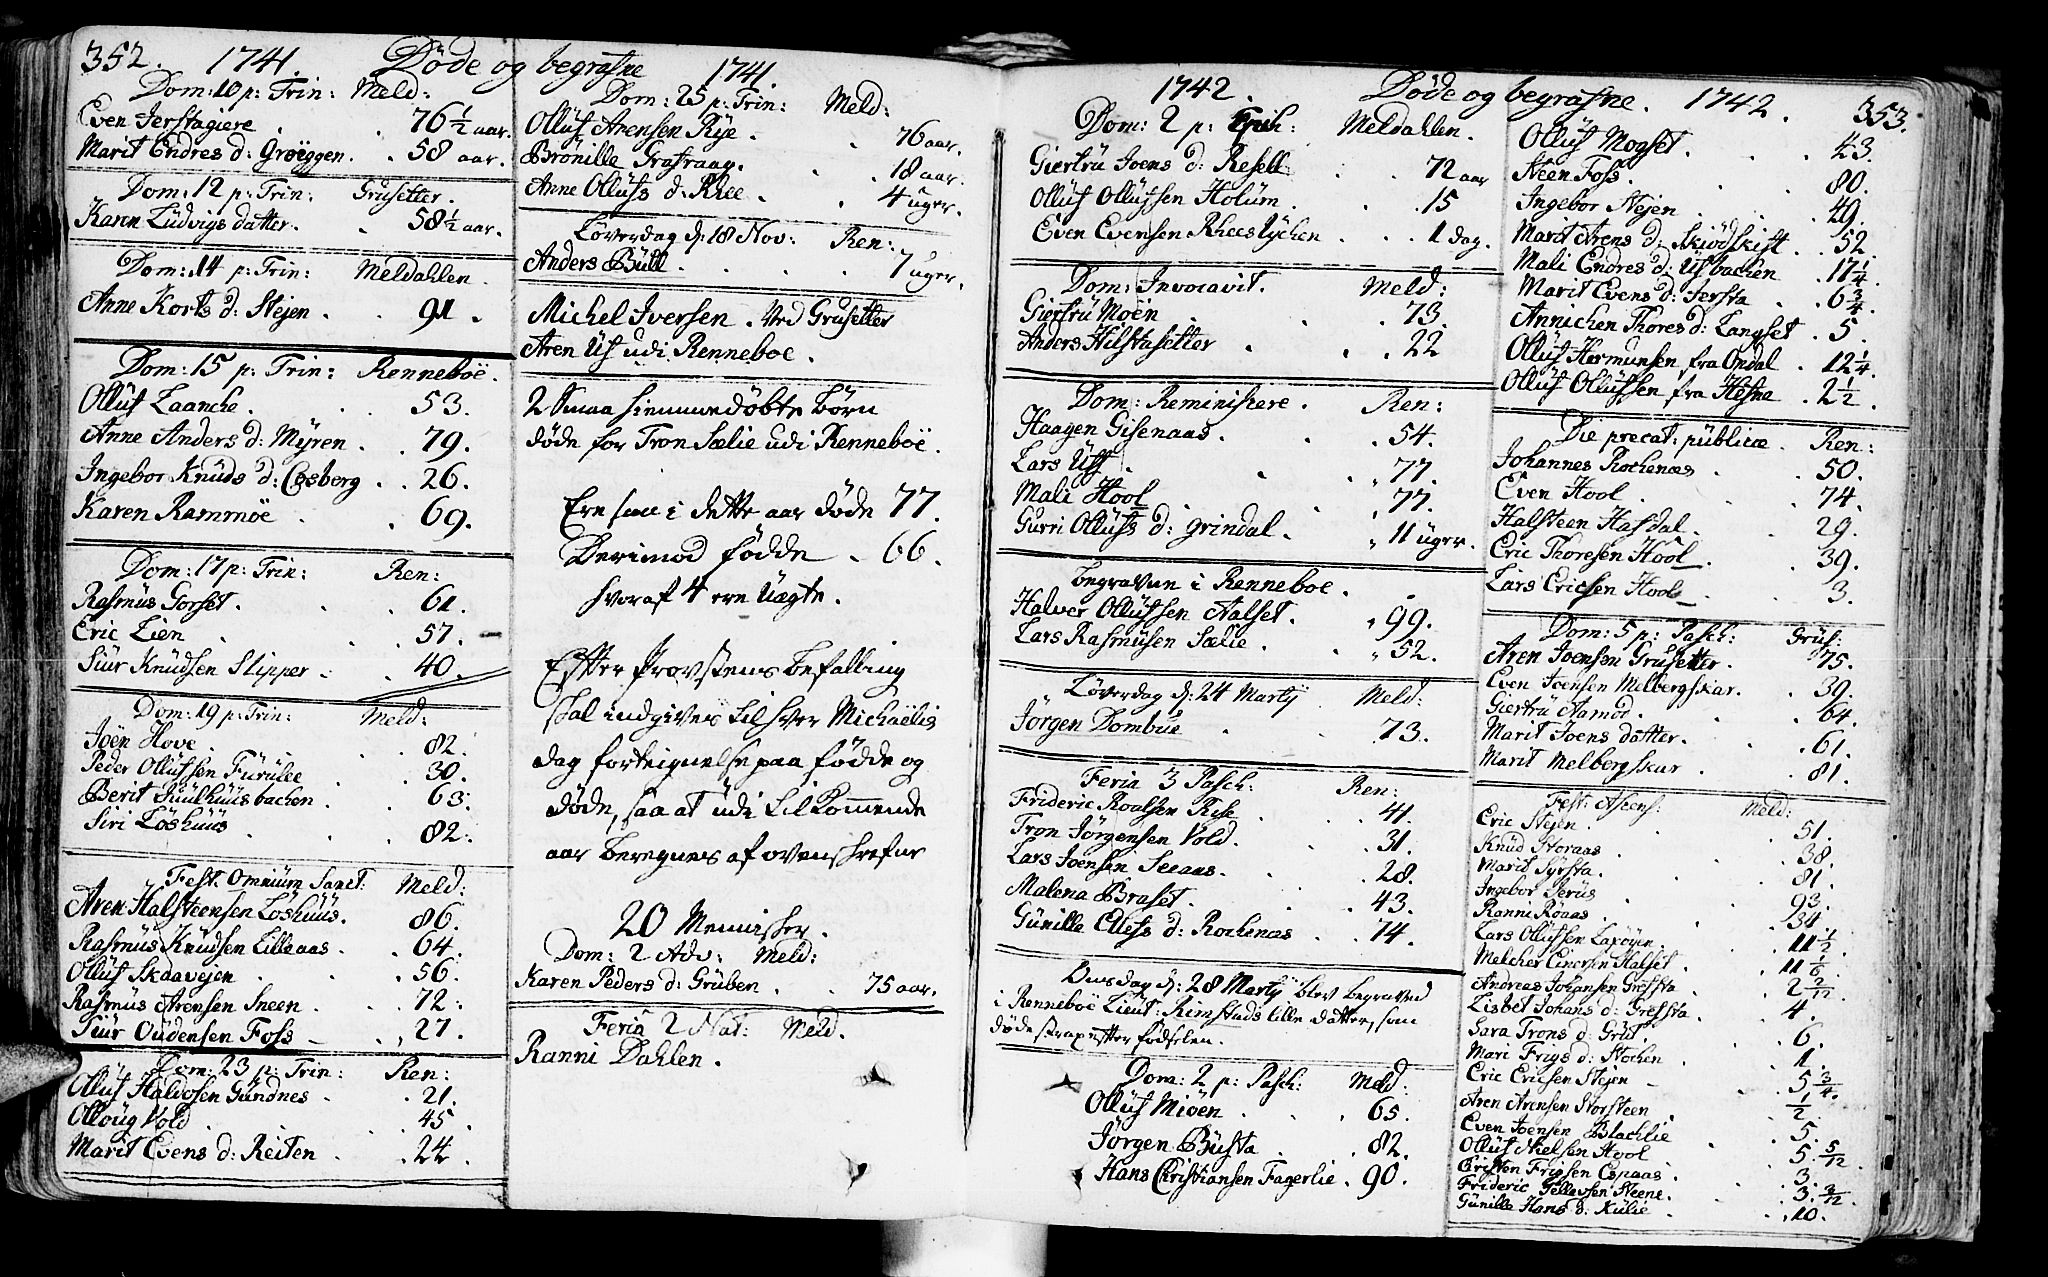 352. 1741. Døde og begrafne 1741.
Dom: 10 p: Trin: Meld:
Even Jerstagiere . . 76 1/2 aar.
Marit Endres d: Grøeggen . . 58 aar.
Dom: 12 p: Trin: Grusetter.
Karen Ludvigs datter . . 58 1/2 aar.
Dom: 14 p: Trin: Meldahlen.
Anne Korts d: Stejen . . 91 .
Dom: 15 p: Trin: Renneboë.
Olluf Laanche . . . 53.
Anne Anders d: Myren . . 79.
Ingebor Knuds d: Cosberg . . 26.
Karen Rammöe . . 69.
Dom: 17 p: Trin: Ren:
Rasmus Gorset . . . 61.
Eric Lien . . . 57.
Siur Knudsen Slipper . . 40.
Dom: 19 p: Trin: Meld:
Joën Hove . . . 82.
Peder Ollufsen Furulee . . 30.
Berit Juulhuusbachen . . 63.
Siri Löshuus . . . 82.
Fest. Omnium Sanct: Meld:
Aren Halsteensen Löshuus . 86.
Rasmus Knudsen Lilleaas . . 64.
Olluf Skaavejen . . . 56.
Rasmus Arensen Sneen . . 72.
Siur Oudensen Foss . . 27.
Dom: 23 p: Trin: Ren:
Olluf Haldosen Gundnes . . 21.
Olloug Vold . . . 45.
Marit Evens d: Reiten . . 24.
Dom: 25 p: Trin: Meld:
Olluf Arensen Rye . . 76 aar.
Brönille Grafraag . . 18 aar.
Anne Ollufs d: Rhee . . 4 uger.
Løverdag d: 18 Nov: Ren:
Anders Bull . . . . 7 uger.
Michel Iversen . Ved Grusetter
Aren Uf udi Renneboe .
2 Smaa hiemmedøbte Børn
døde for Tron Sælie udi Renneboë .
Ere saa i dette aar døde 77.
Derimod fødde . 66.
hvoraf 4 ere Uægte.
Efter Provstens befalling
skal indgives til hver Michaëlis
dag forteignelse paa fødde og
døde, saa at udi tilkommende
aar beregnes af ovenskrefne
20 Mennisker.
Dom: 2 Adv: Meld:
Karen Peders d: Gruben . . 75 aar.
Feria 2 Nat: Meld.
Ranni Dahlen .
1742. Døde og begrafne. 1742. 353.
Dom: 2 p: Epih: Meldahlen.
Giertru Joens d: Resell . . 72 aar
Olluf Ollufsen Holum . . 15
Even Evensen Rheeslychen . . 1 dag.
Dom: Invocavit. Meld:
Giertru Moen . . . 73.
Anders Hilstasetter . . 22
Dom: Reminiscere . Ren:
Haagen Gisenaas . . 54.
Lars Uff . . . 77.
Mali Hool . . . 77.
Gurri Ollufs d: Grindal . . 11 uger.
begraven i Renneboe .
Halvor Ollufsen Aalset . . 99.
Lars Rasmusen Sælie . . 52.
Løverdag d: 24 Martij . Meld:
Jörgen Dombue . . 73.
Feria 3 Pasch: Ren:
Frideric Roalsen Rise . . 41.
Tron Jörgensen Vold . . 31.
Lars Joensen Seeaas . . 28.
Malena Braset . . . 43.
Gunille Ellefs d: Rochenæs . . 74.
Onsdag d: 28 Martij blev begraved
i Renneboë Lieut: Rimstads lille datter, som
døde strax efter fødselen.
Dom: 2 p: Pasch: Meld:
Olluf Mioen . . . 65.
Jörgen Busta . . . 82.
Hans Christiansen Fagerlie . 90.
Olluf Mogset . . . 43.
Steen Foss . . . 80.
Ingebor Stejen . . . 49.
Marit Arens d: Skiødskift . . 52.
Mali Endres d: Usbachen . 17 1/4.
Marit Evens d: Jersta . . 6 3/4.
Annichen Thores d: Langset . 5.
Olluf Hermunsen fra Opdal . 12 1/4.
Olluf Ollufsen fra Hefna . 2 1/2.
Die precat: publicæ . Ren:
Johannes Rochenæs . . 50.
Even Hool . . . 74.
Halsteen Hafdal . . 29.
Eric Thoresen Hool . . 39.
Lars Ericsen Hool . . 3.
Dom: 5 p: Pasch: Grus:
Aren Joensen Grusetter . . 75.
Even Joensen Melbergskar . . 39.
Giertru Aamod . . . 64.
Marit Joens datter . . . 61.
Marit Melbergskar . . 81.
Fest: Ascens: Meld:
Eric Stejen . . . 51.
Knud Storaas . . . 38.
Marit Syrsta . . . 81.
Ingebor Jerus . . . 93.
Ranni Röaas . . . 34.
Lars Ollufsen Laxöyen . . 11 1/2.
Melcher Einersen Halset . . 11 1/6.
Andreas Johansen Grefsta . . 2 2/12.
Lisbet Johans d: Grefsta . . 4.
Sara Trons d: Grut . . 6.
Mari Frigs d: Stochen . . 1.
Eric Ericsen Stejen . . 5 3/4.
Aren Arensen Storsteen . . 1/2.
Even Joensen Blachlie . . 5.
Olluf Nielsen Hool . . 5 5/12.
Cristen Frigsen Espaas . . 3.
Frideric Tellevsen Steene . . 3 3/12.
Gunille Hans d: Kulie . . 10.